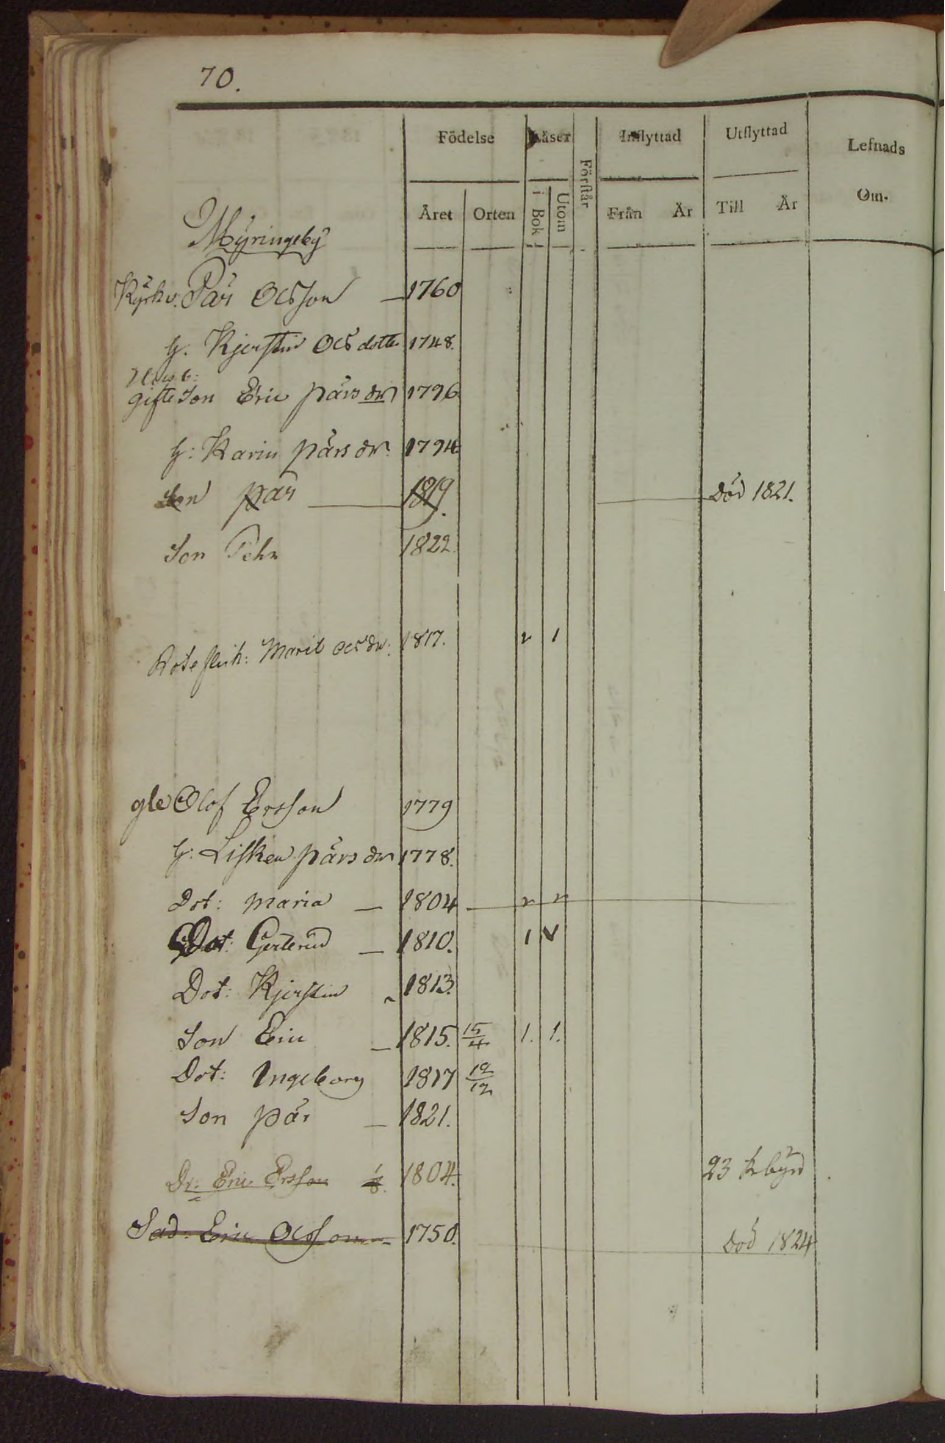 70.
Födelse Läser Inflyttad Utflyttad Lefnads
Förstår
Året Orten i Bok Utom Från År Till År Om-
Myringeby
Kyrkv. Pär Olsson — 1760
h. Kjerstin Ols dotter 1748.
gifte Son Eric pärs 1796
h: Karin pärs dr. 1794
Son pär 1819. Död 1821.
Son Pehr 1822.
Rote flick: Marit Ols dr. 1817. 2 1
gle Olof Ersson 1779
h: Lisken pärs dr 1778.
Dot: maria — 1804 2 2
Dot: Gertrud — 1810. 1 V
Dot: Kjerstin 1813.
Son Eric — 1815. 15/4 1. 1.
Dot: Ingeborg 1817 12/12
Son pär — 1821.
Dr: Eric Ersson 1804. 23
Sad: Eric Olsson 1750. död 1824